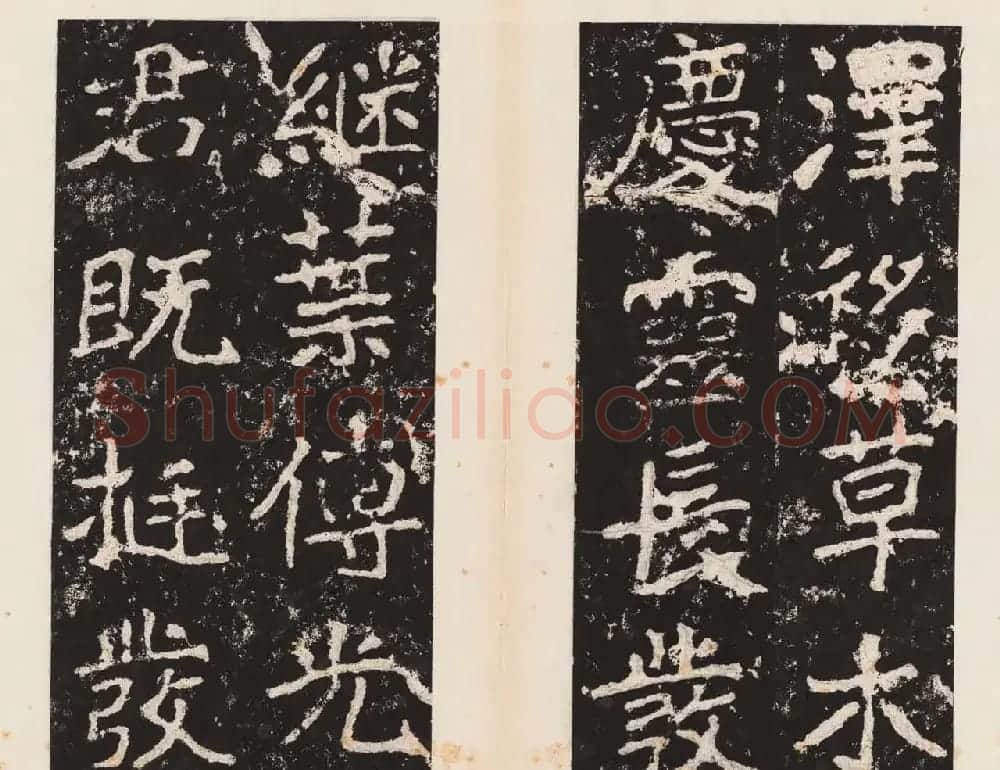 澤草木
慶靈長發
繼葉傳光
君既挺發
Shufazilido.COM